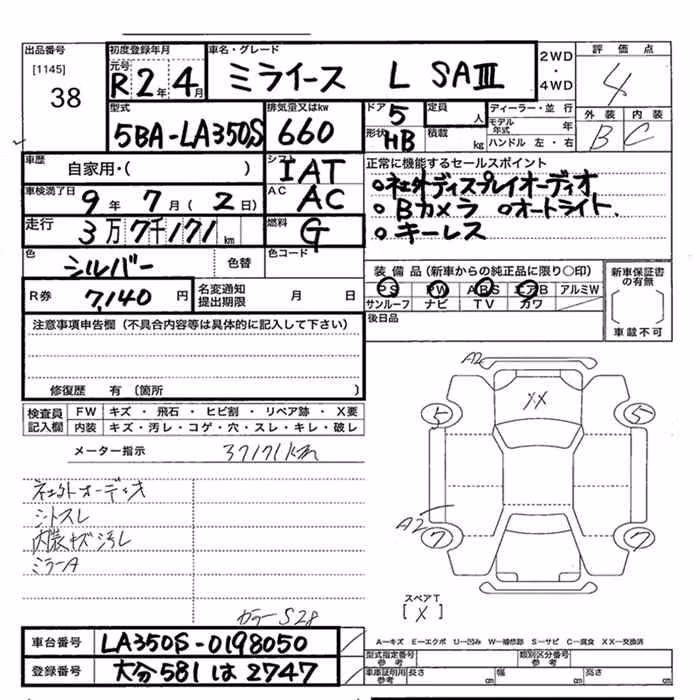 出品番号
[1145]
38
初度登録年月
元号
R2年4月
車名・グレード
ミライース L SAⅢ
2WD
・
4WD
評価点
4
外装 内装
B C
型式
5BA-LA350S
排気量又はkw
660
ドア
5
形状
HB
定員
人
積載
kg
ディーラー・並行
モデル年式
年
ハンドル 左・右
車歴
自家用・( )
シフト
IAT
正常に機能するセールスポイント
○社外ディスプレイオーディオ
○Bカメラ ○オートライト.
○キーレス
車検満了日
9年7月(2日)
AC
AC
走行
3万7千171km
燃料
G
色
シルバー
色替
色コード
装備品(新車からの純正品に限り○印)
PS PW ABS エアB アルミW
サンルーフ ナビ TV カワ
新車保証書の有無
[ ]
車載不可
R券
7,140円
名変通知
提出期限
月 日
後日品
注意事項申告欄(不具合内容等は具体的に記入して下さい)
修復歴 有(箇所 )
検査員記入欄
FW キズ・飛石・ヒビ割・リペア跡・X要
内装 キズ・汚レ・コゲ・穴・スレ・キレ・破レ
メーター指示
37171km
社外オーディオ
シートスレ
内装キズ汚レ
ミラーA
カラーS28
A2
XX
5
5
A2
7
7
スペアT
[X]
A―キズ E―エクボ U―凹み W―補修跡 S―サビ C―腐食 XX―交換済
車台番号
LA350S-0198050
登録番号
大分581は2747
型式指定番号
参考
類別区分番号
参考
車庫証明用
参考
長さ
cm
幅
cm
高さ
cm